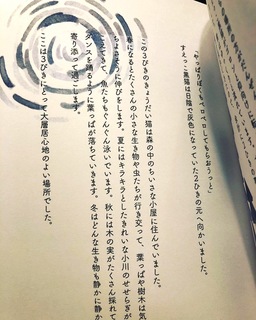 「やっぱりぼくもペロペロしてもらおうっと」
すえっこ黒猫は日陰で灰色になっていた2ひきの元へ向かいました。
この3びきのきょうだい猫は森の中のちいさな小屋に住んでいました。
春になるとたくさんの小さな生き物や虫たちが行き交って、葉っぱや樹木は気
ちよさそうに伸びをします。夏にはキラキラとしたきれいな小川のせせらぎが
こえてきて、魚たちもぐんぐん泳いでいます。秋には木の実がたくさん採れて
ダンスを踊るように葉っぱが落ちていきます。冬はどんな生き物も静かに静か
寄り添って過ごします。
ここは3びきにとって大層居心地のよい場所でした。